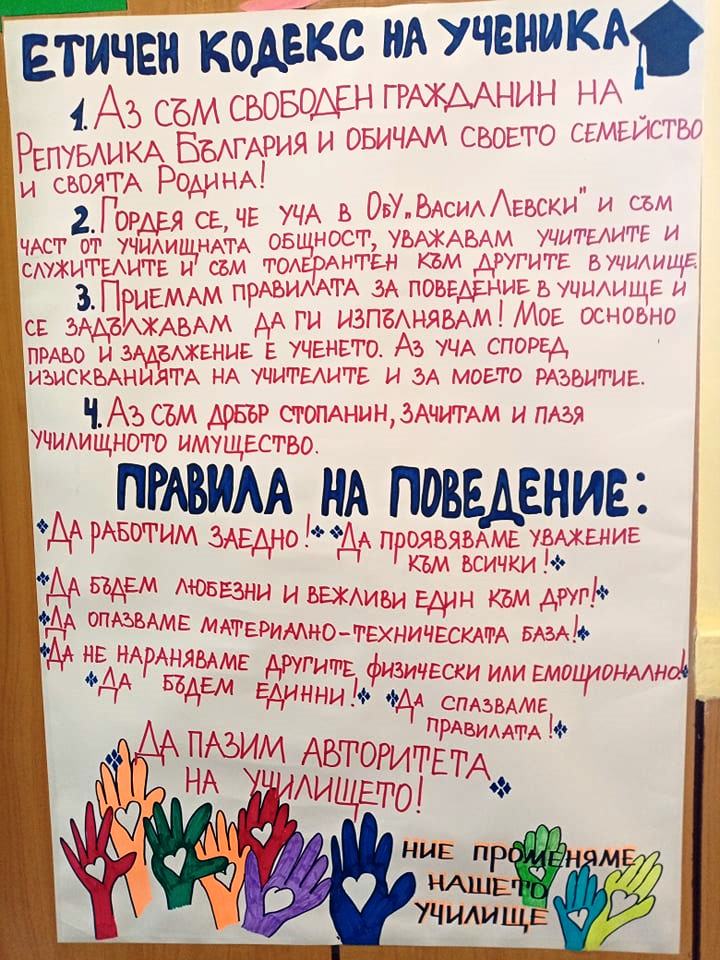 ЕТИЧЕН КОДЕКС НА УЧЕНИКА
1. АЗ СЪМ СВОБОДЕН ГРАЖДАНИН НА
РЕПУБЛИКА БЪЛГАРИЯ И ОБИЧАМ СВОЕТО СЕМЕЙСТВО
И СВОЯТА РОДИНА!
2. ГОРДЕЯ СЕ, ЧЕ УЧА В ОБУ „ВАСИЛ ЛЕВСКИ" И СЪМ
ЧАСТ ОТ УЧИЛИЩНАТА ОБЩНОСТ, УВАЖАВАМ УЧИТЕЛИТЕ И
СЛУЖИТЕЛИТЕ И СЪМ ТОЛЕРАНТЕН КЪМ ДРУГИТЕ В УЧИЛИЩЕ.
3. ПРИЕМАМ ПРАВИЛАТА ЗА ПОВЕДЕНИЕ В УЧИЛИЩЕ И
СЕ ЗАДЪЛЖАВАМ ДА ГИ ИЗПЪЛНЯВАМ! МОЕ ОСНОВНО
ПРАВО И ЗАДЪЛЖЕНИЕ Е УЧЕНЕТО. АЗ УЧА СПОРЕД
ИЗИСКВАНИЯТА НА УЧИТЕЛИТЕ И ЗА МОЕТО РАЗВИТИЕ.
4. АЗ СЪМ ДОБЪР СТОПАНИН, ЗАЧИТАМ И ПАЗЯ
УЧИЛИЩНОТО ИМУЩЕСТВО.
ПРАВИЛА НА ПОВЕДЕНИЕ:
❖ДА РАБОТИМ ЗАЕДНО!❖ ❖ДА ПРОЯВЯВАМЕ УВАЖЕНИЕ
КЪМ ВСИЧКИ!❖
❖ДА БЪДЕМ ЛЮБЕЗНИ И ВЕЖЛИВИ ЕДИН КЪМ ДРУГ!❖
❖ДА ОПАЗВАМЕ МАТЕРИАЛНО-ТЕХНИЧЕСКАТА БАЗА!❖
❖ДА НЕ НАРАНЯВАМЕ ДРУГИТЕ ФИЗИЧЕСКИ ИЛИ ЕМОЦИОНАЛНО!❖
❖ДА БЪДЕМ ЕДИННИ!❖ ❖ДА СПАЗВАМЕ
ПРАВИЛАТА!❖
❖ДА ПАЗИМ АВТОРИТЕТА
НА УЧИЛИЩЕТО!❖
НИЕ ПРОМЕНЯМЕ
НАШЕТО
УЧИЛИЩЕ